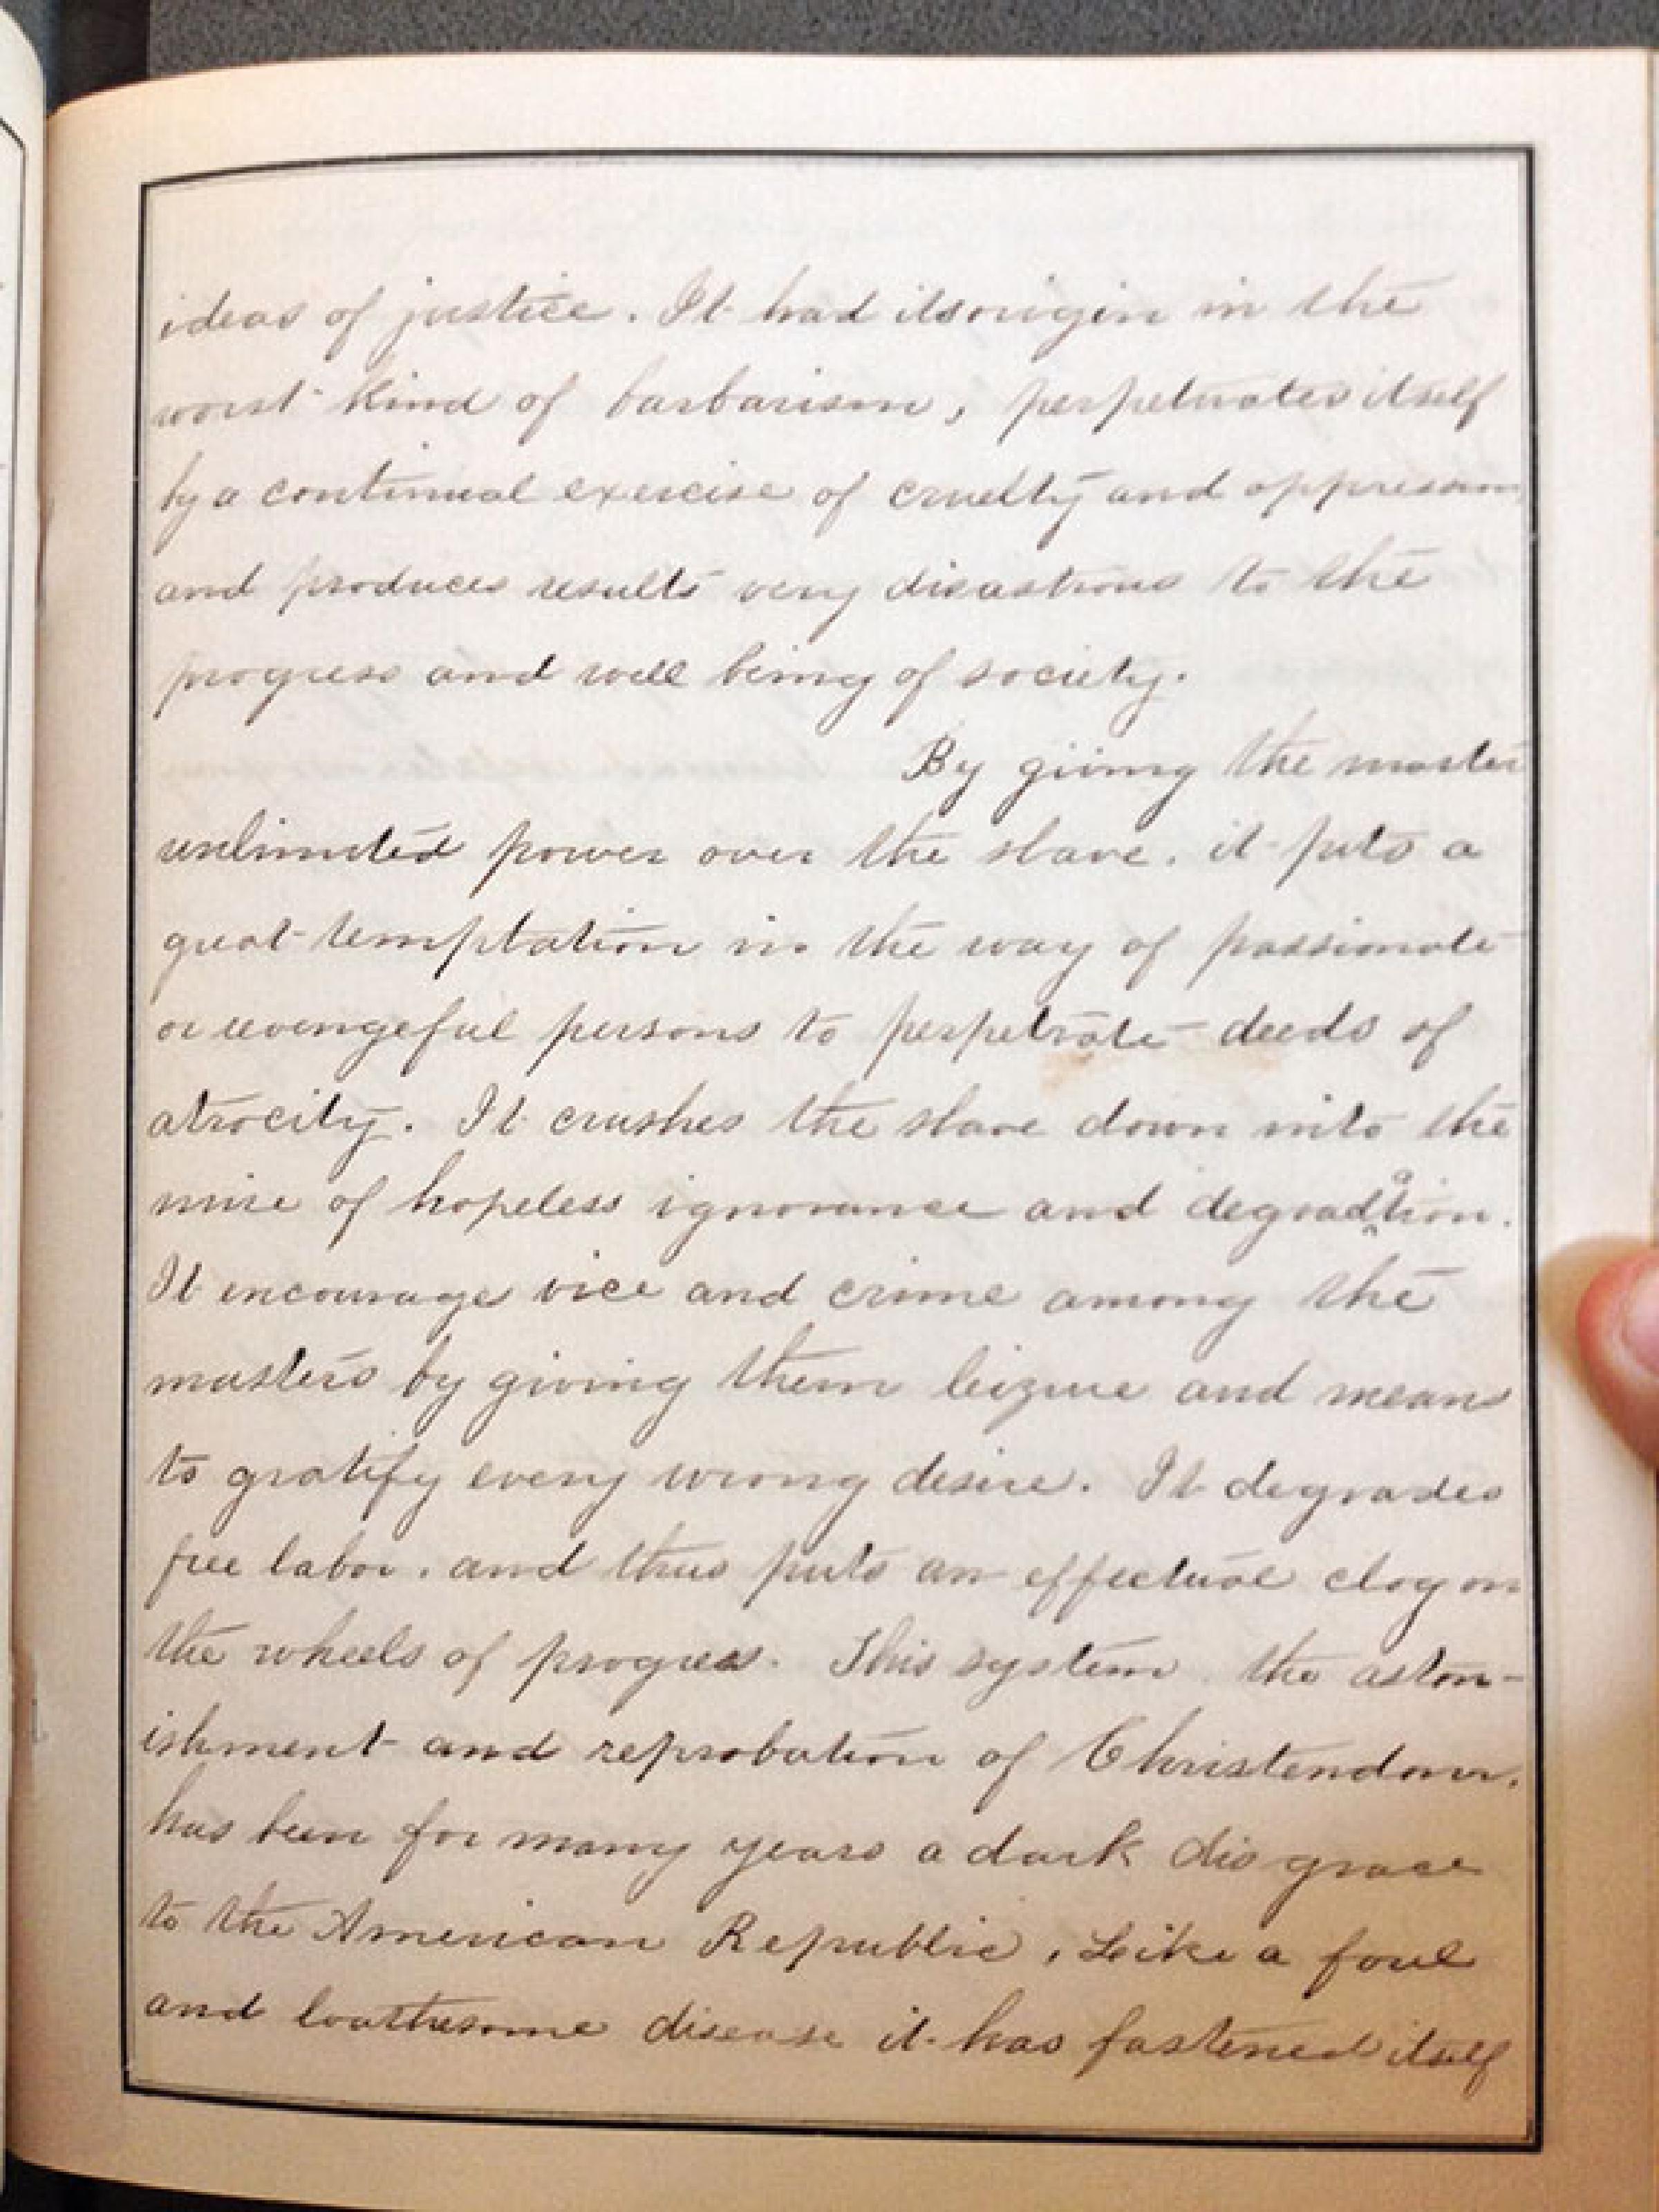 ideas of justice. It had its origin in the
worst kind of barbarism, perpetuates itself
by a continual exercise of cruelty and oppression,
and produces results very disastrous to the
progress and well being of society.
By giving the master
unlimited power over the slave, it puts a
great temptation in the way of passionate
or revengeful persons to perpetrate deeds of
atrocity. It crushes the slave down into the
mire of hopeless ignorance and degradation.
It encourage vice and crime among the
masters by giving them leizure and means
to gratify every wrong desire. It degrades
free labor, and thus puts an effectual clog on
the wheels of progress. This system the aston-
ishment and reprobation of Christendom,
has been for many years a dark dis grace
to the American Republic, Like a foul
and loathesome disease it has fastened itself